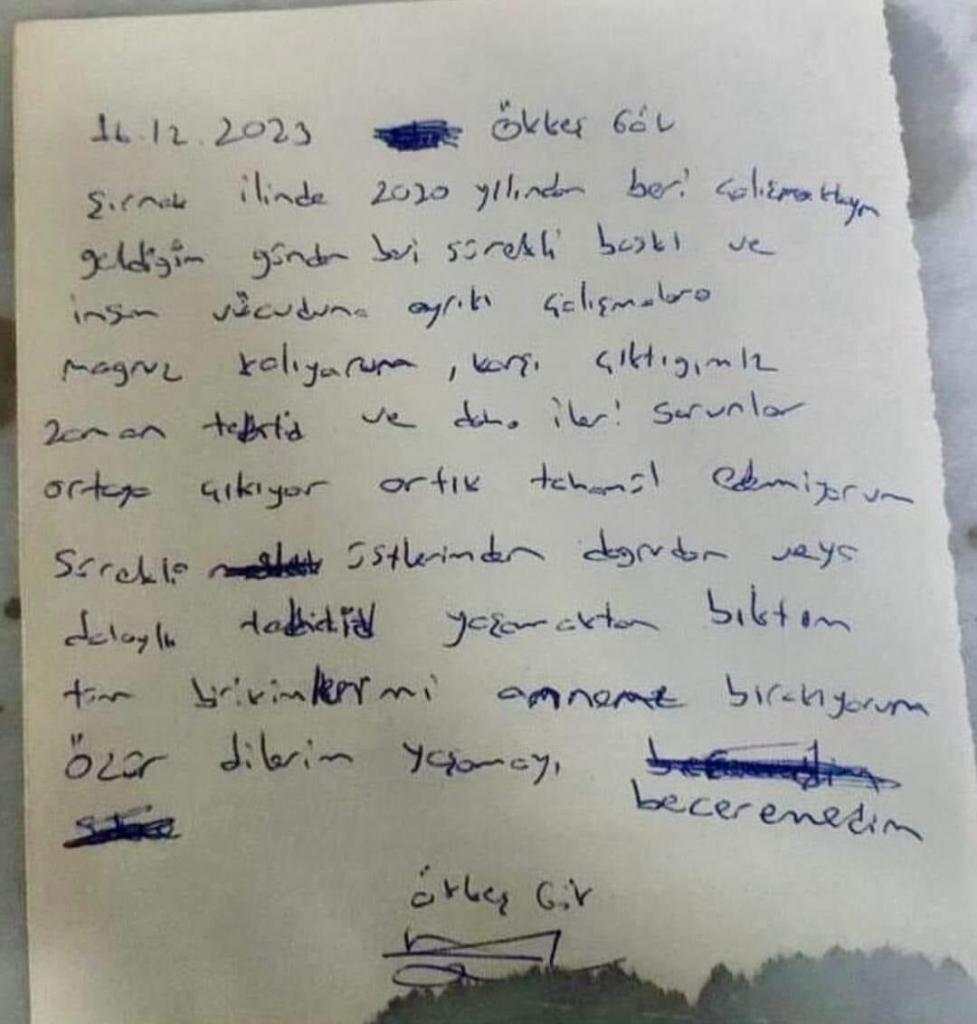 16.12.2023 Ökkeş Gök
Şırnak ilinde 2020 yılından beri çalışmaktayım
geldiğim günden beri sürekli baskı ve
insan vücuduna aykırı çalışmalara
magruz kalıyorum, karşı çıktıgımız
zaman tehtid ve daha ileri sorunlar
ortaya çıkıyor artık tahamül edemiyorum
Sürekli üstlerimden dogrudan veya
dolaylı tehtid yaşamaktan bıktım
tüm birikimlermi anneme bırakıyorum
Özür dilerim yaşamayı
beceremedim
Ökkeş Gök